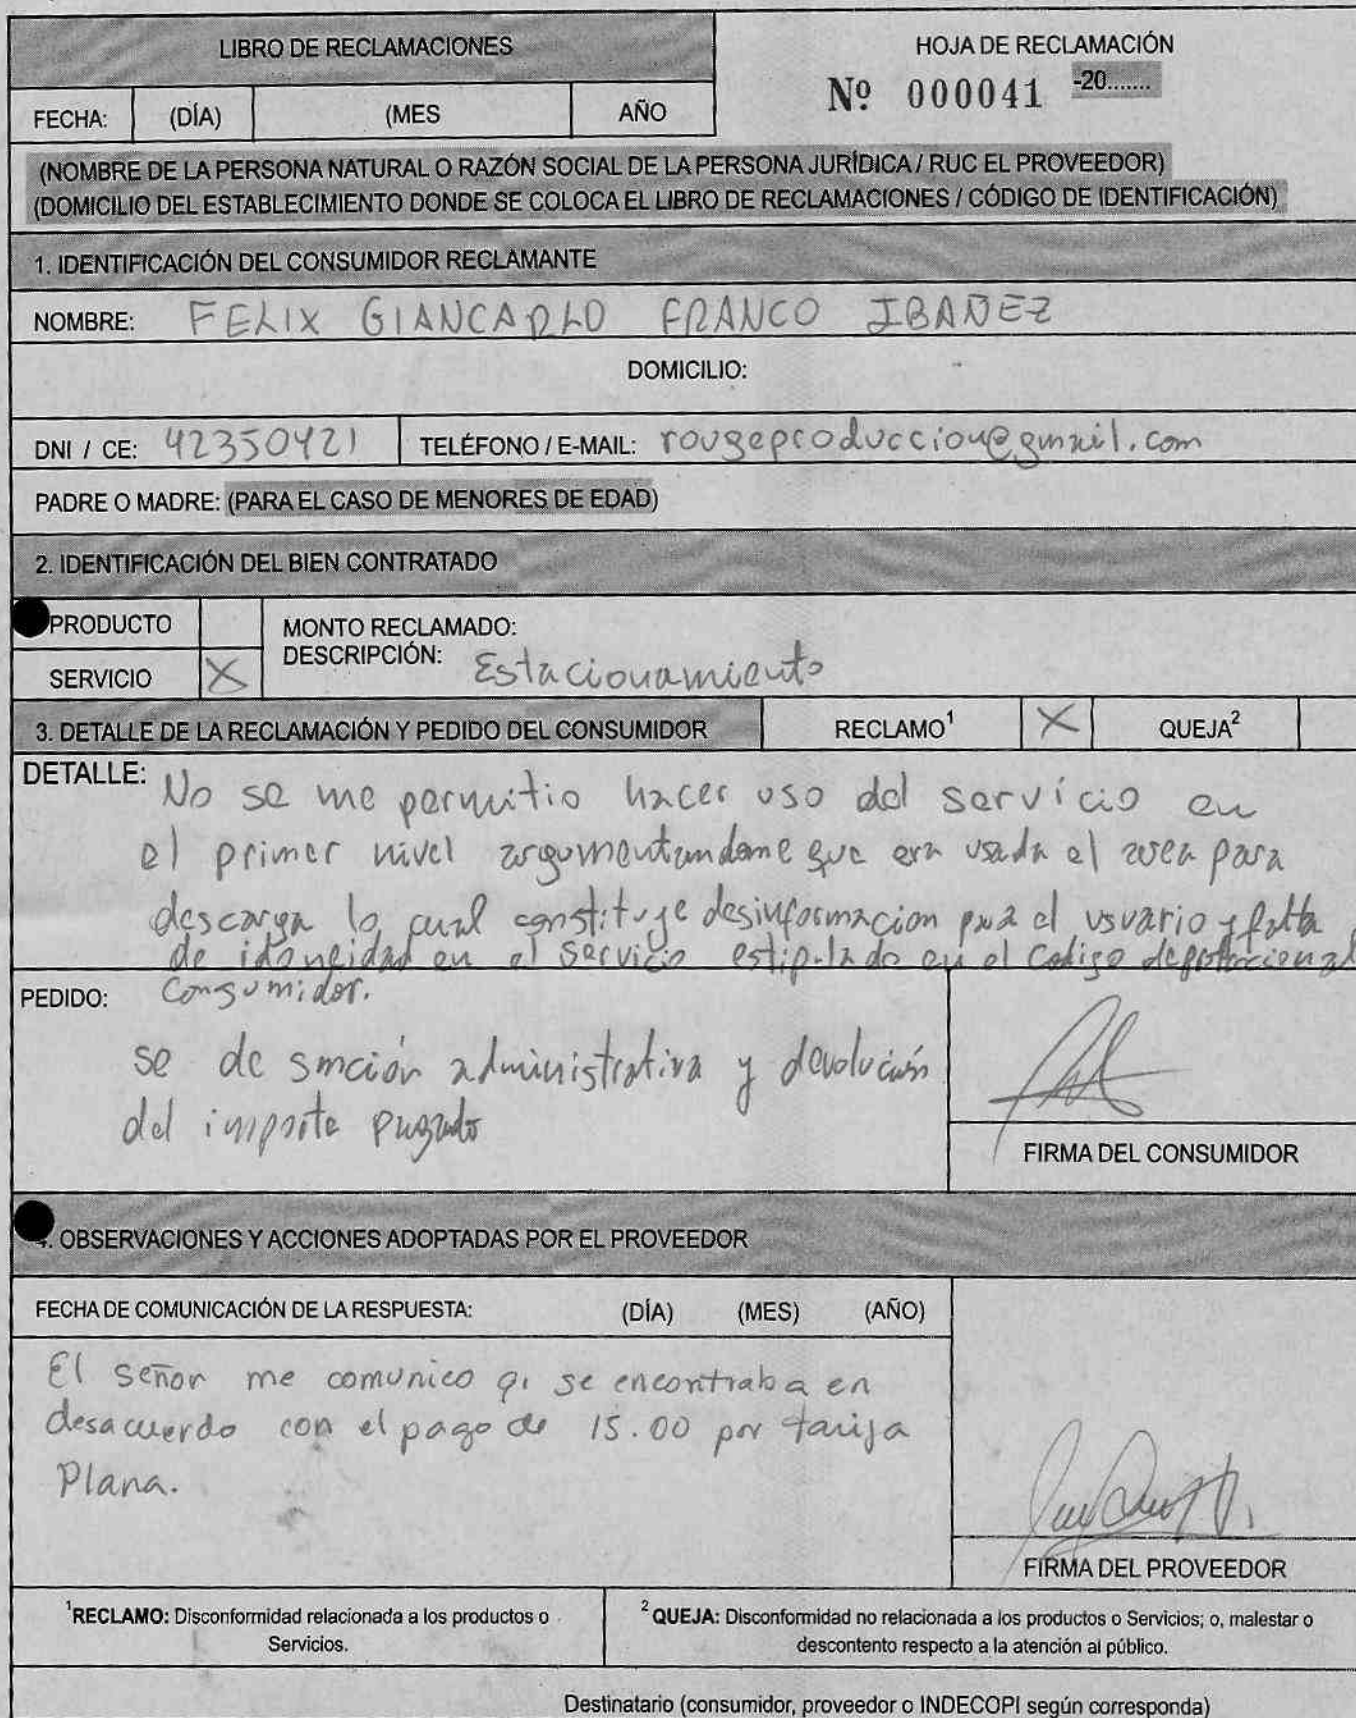 LIBRO DE RECLAMACIONES
HOJA DE RECLAMACIÓN
Nº 000041 -20.......
FECHA: (DÍA) (MES AÑO
(NOMBRE DE LA PERSONA NATURAL O RAZÓN SOCIAL DE LA PERSONA JURÍDICA / RUC EL PROVEEDOR)
(DOMICILIO DEL ESTABLECIMIENTO DONDE SE COLOCA EL LIBRO DE RECLAMACIONES / CÓDIGO DE IDENTIFICACIÓN)
1. IDENTIFICACIÓN DEL CONSUMIDOR RECLAMANTE
NOMBRE: FELIX GIANCARLO FRANCO IBAÑEZ
DOMICILIO:
DNI / CE: 42350421 TELÉFONO / E-MAIL: rougeproduccion@gmail.com
PADRE O MADRE: (PARA EL CASO DE MENORES DE EDAD)
2. IDENTIFICACIÓN DEL BIEN CONTRATADO
PRODUCTO
MONTO RECLAMADO:
SERVICIO X
DESCRIPCIÓN: Estacionamiento
3. DETALLE DE LA RECLAMACIÓN Y PEDIDO DEL CONSUMIDOR RECLAMO¹ X QUEJA²
DETALLE: No se me permitio hacer uso del servicio en
el primer nivel argumentandome que era usada el area para
descarga lo cual constituye desinformacion para el usuario y falta
de idoneidad en el servicio estipulado en el Codigo de proteccion al
consumidor.
PEDIDO:
se de sanción administrativa y devolución
del importe pagado
FIRMA DEL CONSUMIDOR
4. OBSERVACIONES Y ACCIONES ADOPTADAS POR EL PROVEEDOR
FECHA DE COMUNICACIÓN DE LA RESPUESTA: (DÍA) (MES) (AÑO)
El señor me comunico q. se encontraba en
desacuerdo con el pago de 15.00 por tarifa
Plana.
FIRMA DEL PROVEEDOR
¹RECLAMO: Disconformidad relacionada a los productos o
Servicios.
² QUEJA: Disconformidad no relacionada a los productos o Servicios; o, malestar o
descontento respecto a la atención al público.
Destinatario (consumidor, proveedor o INDECOPI según corresponda)